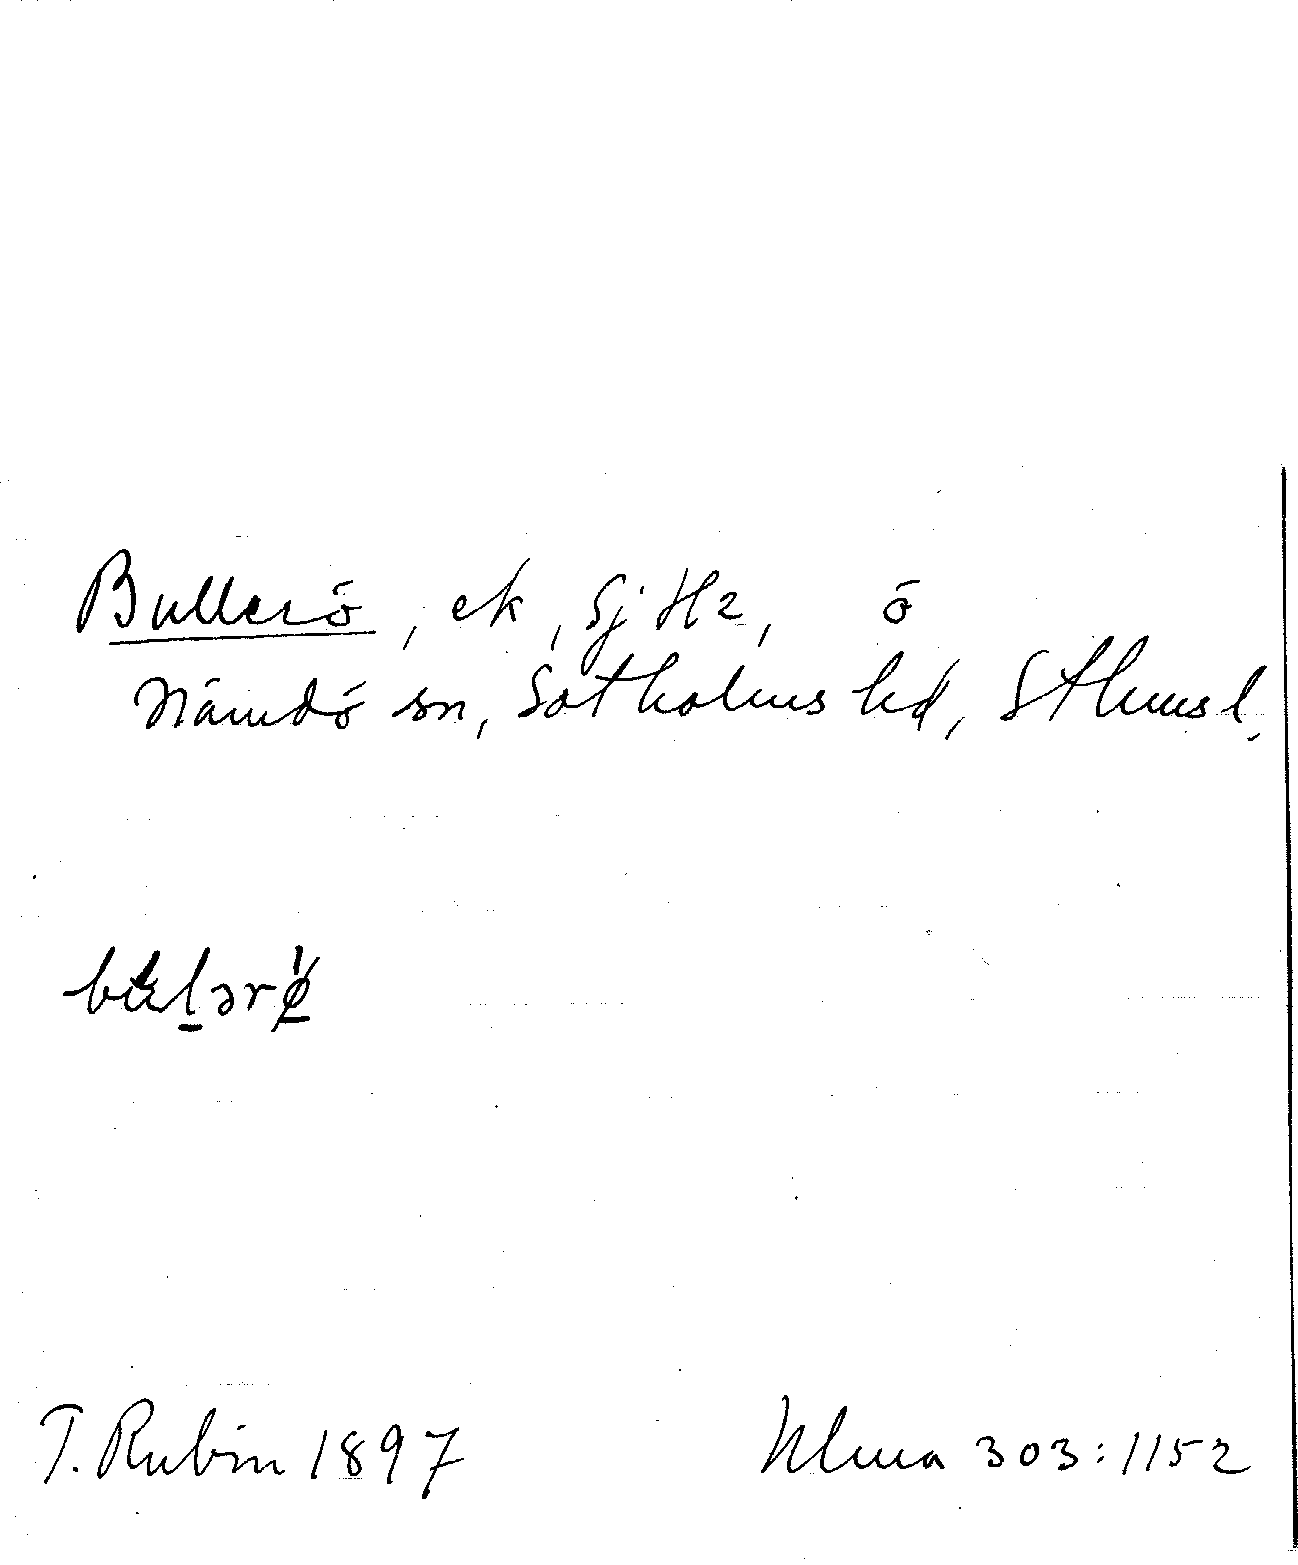 Bullerö, ek, Sj H2, ö
Nämdö sn, Sotholms hd, Sthms l.
T. Rubin 1897
Ulma 303:1152